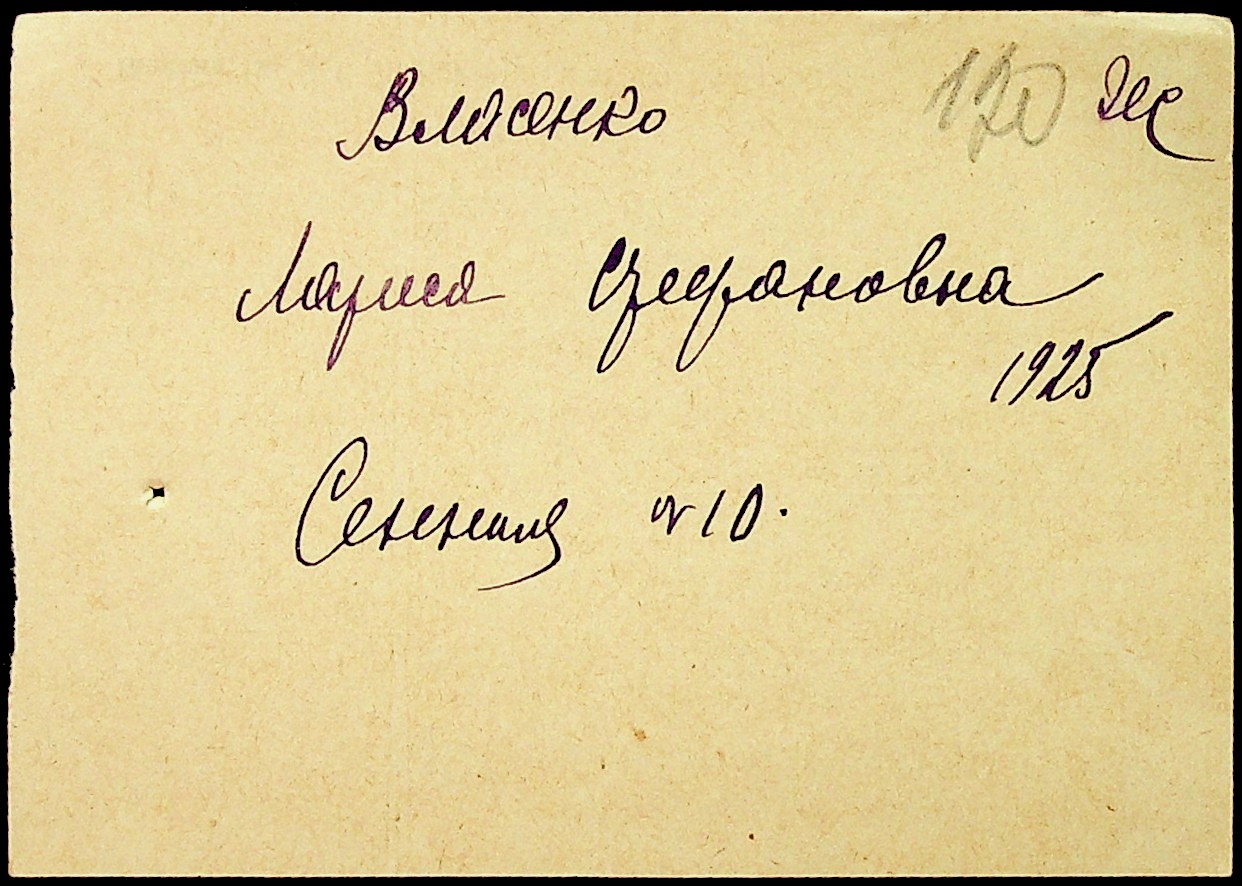 Власенко 120
Лариса Стефановна
1925
Сенная № 10.